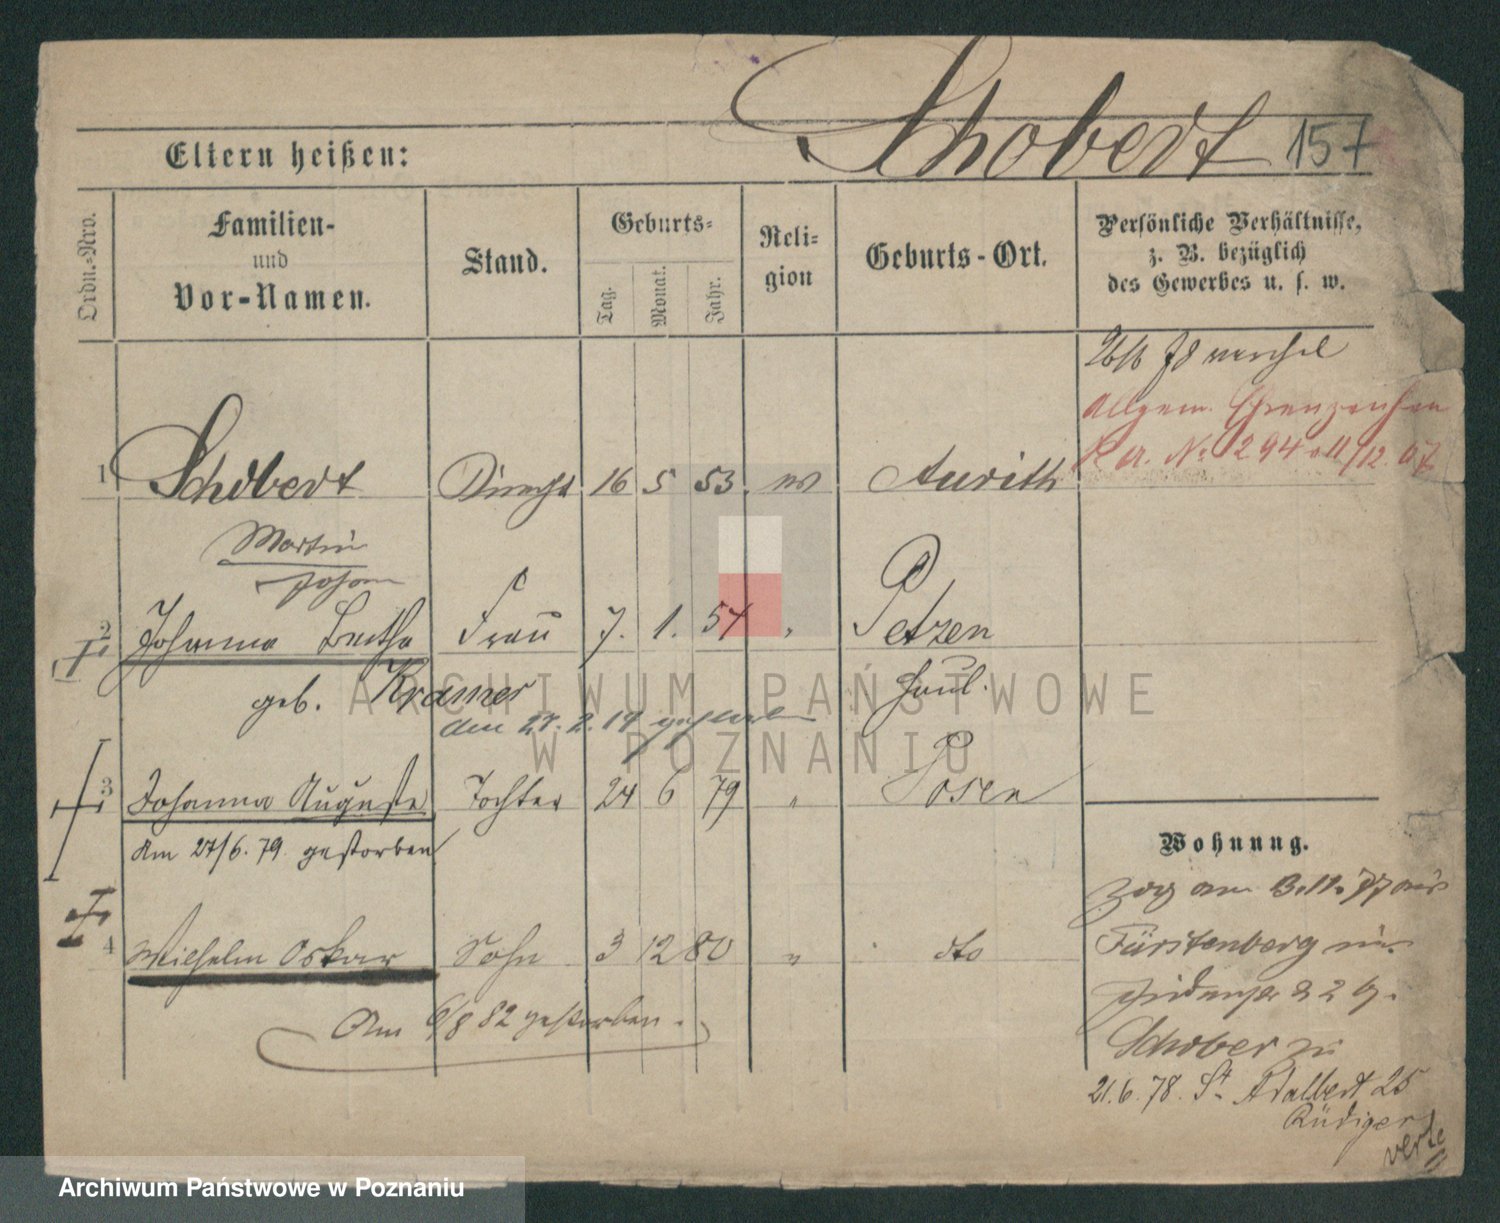 Schobert 157
Eltern heißen:
Ordn.-Nro.
Familien-
und
Vor-Namen.
Stand.
Geburts-
Tag.
Monat.
Jahr.
Reli-
gion
Geburts-Ort.
Persönliche Verhältnisse,
z. B. bezüglich
des Gewerbes u. s. w.
Allgem. Ehrenzeichen
No 294 11/12 07
1 Schobert 16 5 53 Aurith
Martin
Johann
2 Johanna Bertha Frau 7. 1. 54 " Petzen
geb. Kramer
am 27. 2. 19 gestorben
3 Johanna Auguste Tochter 24 6 79 " Posen
Am 27/6. 79. gestorben
4 Wilhelm Oskar Sohn 3 12 80 " dto
Am 6/8 82 gestorben.
Wohnung.
zog am 3.11. 77 aus
Fürstenberg
Schober
21.6.78. St. Adalbert 25
Rüdiger
verte
ARCHIWUM PAŃSTWOWE
W POZNANIU
Archiwum Państwowe w Poznaniu